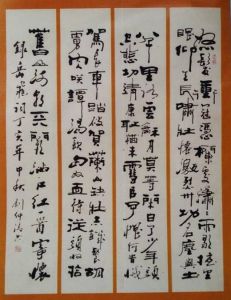 怒髮衝冠憑欄處瀟瀟雨歇抬望
眼仰天長嘯壯懷激烈三十功名塵與土
八千里路雲和月莫等閒白了少年頭
空悲切靖康恥猶未雪臣子恨何時滅
駕長車踏破賀蘭山缺壯志飢餐胡
虜肉笑談渴飲匈奴血待從頭收拾
舊山河朝天闕滿江紅一首寫懷
錄岳飛詞丁亥年中秋劉仲